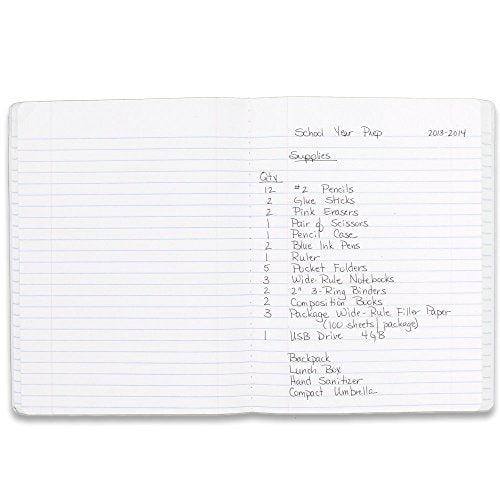 School Year Prep 2013-2014
Supplies
Qty
12 #2 Pencils
2 Glue Sticks
2 Pink Erasers
1 Pair of Scissors
1 Pencil Case
2 Blue Ink Pens
1 Ruler
5 Pocket Folders
3 Wide-Rule Notebooks
2 2" 3-Ring Binders
2 Composition Books
3 Package Wide-Rule Filler Paper
(100 sheets/package)
1 USB Drive 4GB
Backpack
Lunch Box
Hand Sanitizer
Compact Umbrella